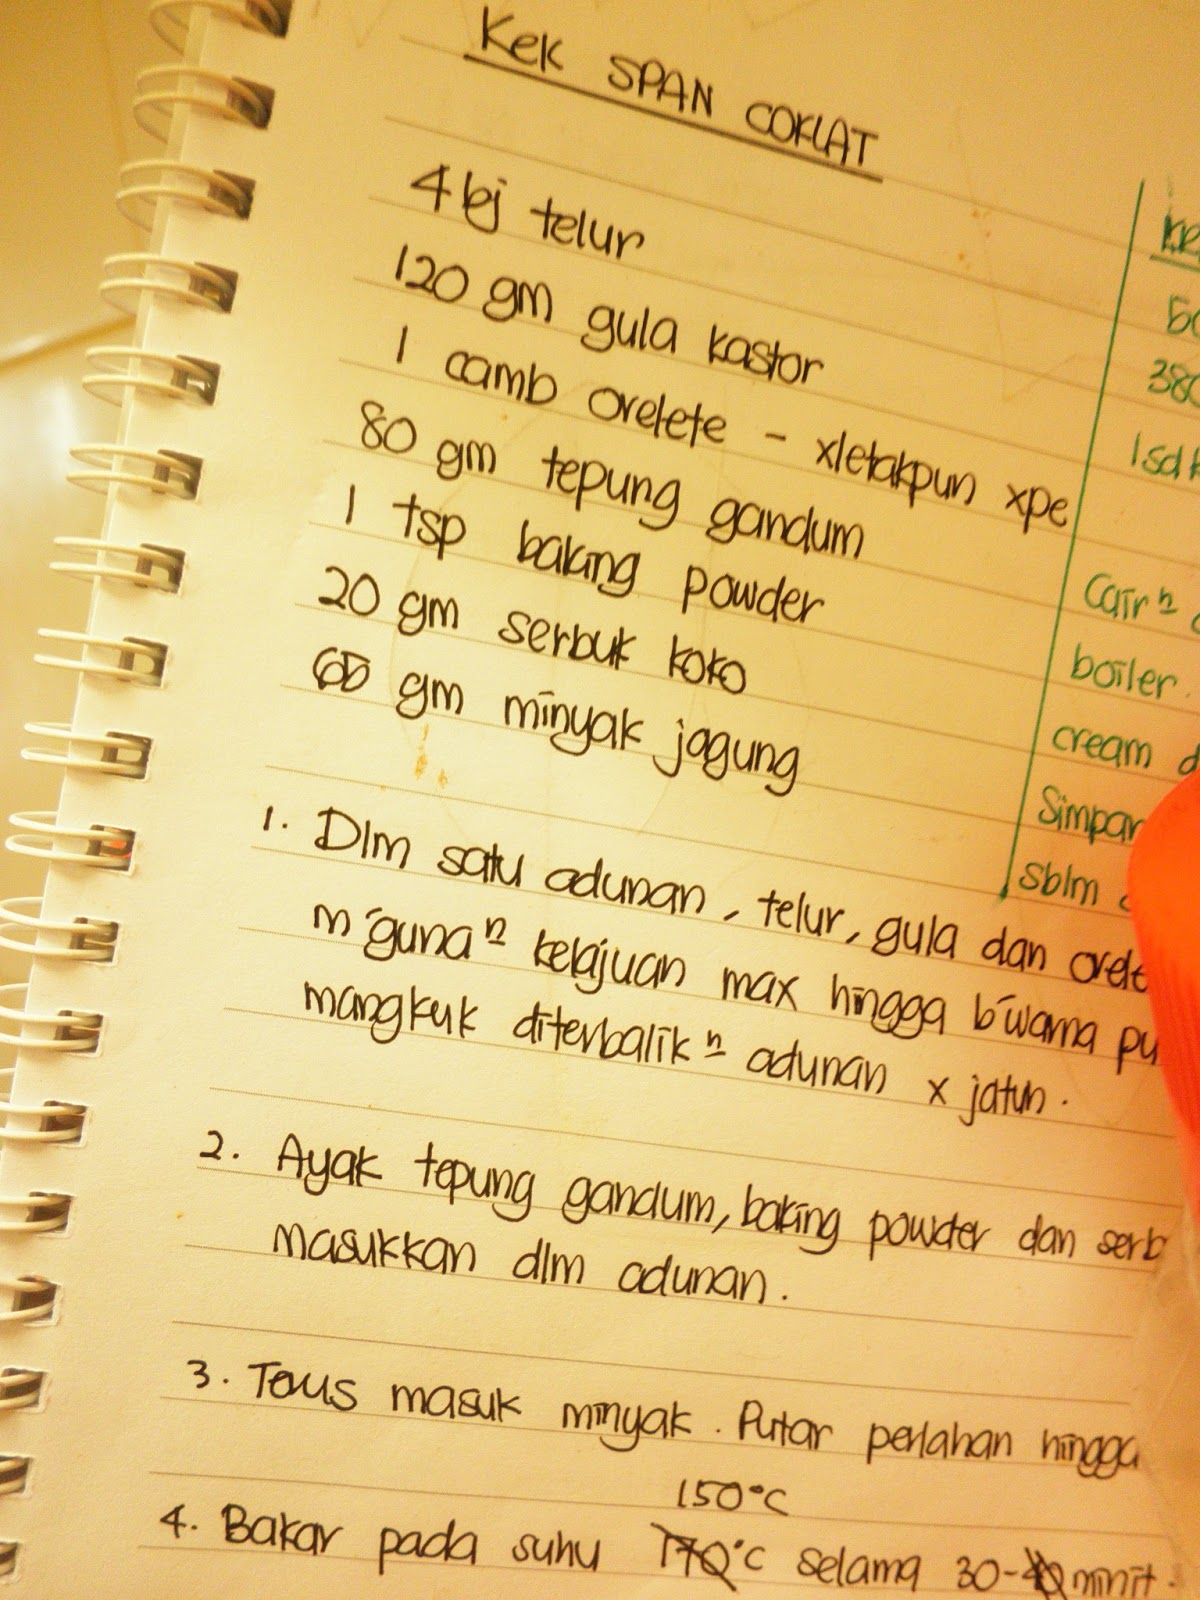 Kek SPAN COKLAT
4 bj telur
120 gm gula kastor
1 camb ovelete - xletakpun xpe
80 gm tepung gandum
1 tsp baking powder
20 gm serbuk koko
gm minyak jagung
1. Dlm satu adunan, telur, gula dan ovelet
m'guna n kelajuan max hingga b'warna pu
mangkuk diterbalik n adunan x jatuh.
2. Ayak tepung gandum, baking powder dan serb
masukkan dlm adunan.
3. Terus masuk minyak. Putar perlahan hingga
150°C
4. Bakar pada suhu 170°C selama 30-40 minit.
380
1 sd
Cair n
boiler
cream d
Simpan
sblm